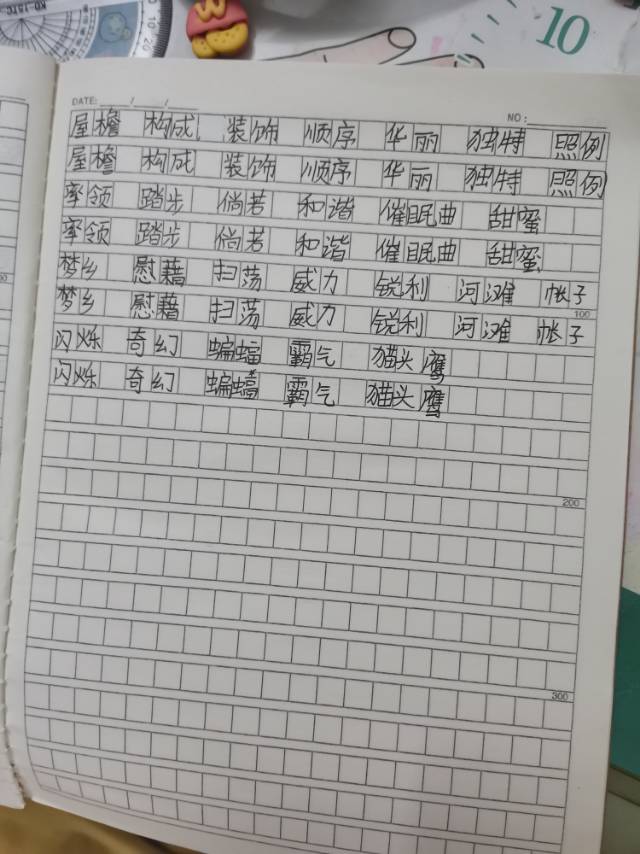 KD-157C
10
DATE: ____/____/____
NO:
屋檐 构成 装饰 顺序 华丽 独特 照例
屋檐 构成 装饰 顺序 华丽 独特 照例
率领 踏步 倘若 和谐 催眠曲 甜蜜
率领 踏步 倘若 和谐 催眠曲 甜蜜
梦乡 慰藉 扫荡 威力 锐利 河滩 帐子
100
梦乡 慰藉 扫荡 威力 锐利 河滩 帐子
闪烁 奇幻 蝙蝠 霸气 猫头鹰
闪烁 奇幻 蝙蝠 霸气 猫头鹰
200
300